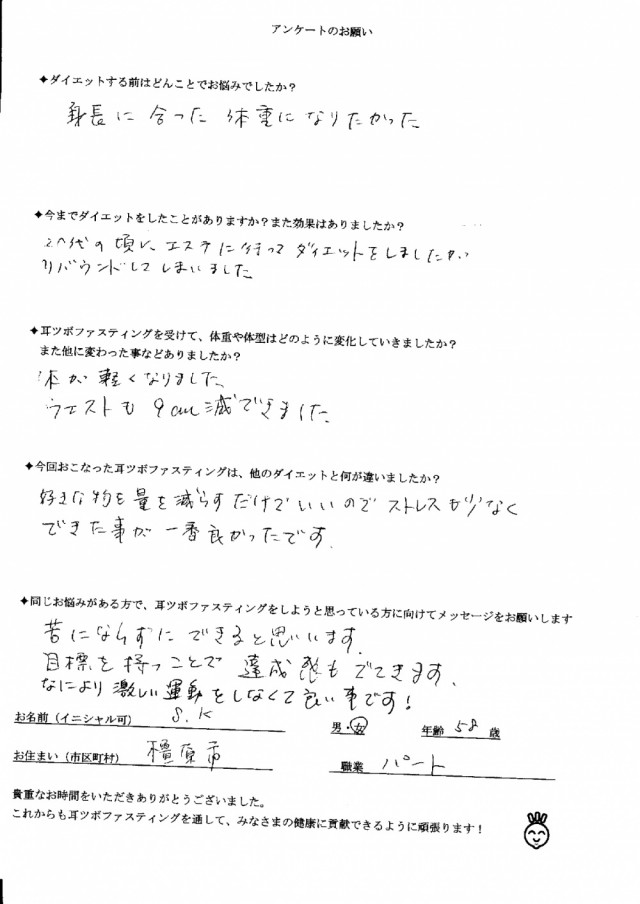 アンケートのお願い
✦ダイエットする前はどんなことでお悩みでしたか？
身長に合った体重になりたかった
✦今までダイエットをしたことがありますか？また効果はありましたか？
20代の頃に エステに行って ダイエットをしましたが
リバウンドしてしまいました
✦耳ツボファスティングを受けて、体重や体型はどのように変化していきましたか？
また他に変わった事などありましたか？
体が軽くなりました
ウエストも 9cm減できました
✦今回おこなった耳ツボファスティングは、他のダイエットと何が違いましたか？
好きな物を量を減らすだけでいいので ストレスが少なく
できた事が一番良かったです.
✦同じお悩みがある方で、耳ツボファスティングをしようと思っている方に向けてメッセージをお願いします
苦にならずに できると思います.
目標を持つことで 達成感もでてきます.
なにより激しい運動をしなくて良い事です！
お名前（イニシャル可） S.K 男・女 年齢 58 歳
お住まい（市区町村） 橿原市 職業 パート
貴重なお時間をいただきありがとうございました。
これからも耳ツボファスティングを通して、みなさまの健康に貢献できるように頑張ります！